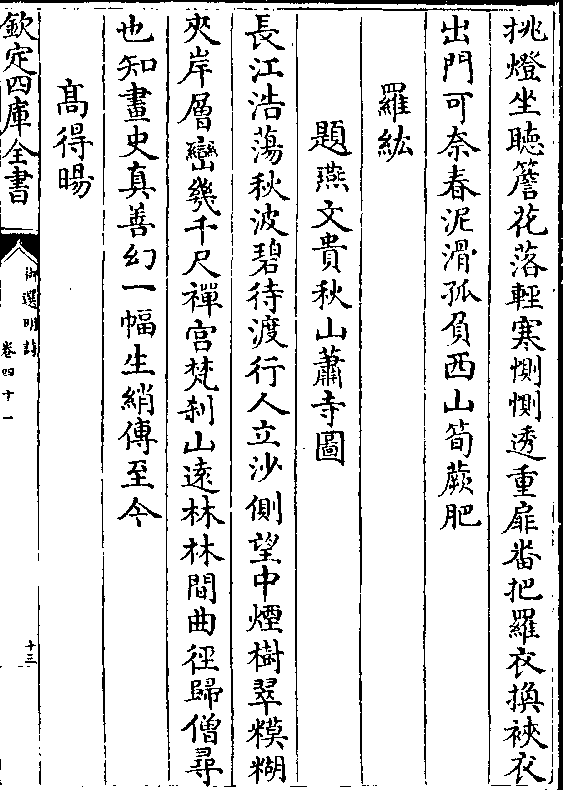 挑燈坐聽簷花落輕寒惻惻透重扉番把羅衣換裌衣
出門可奈春泥滑孤負西山筍蕨肥
羅紘
題燕文貴秋山蕭寺圖
長江浩蕩秋波碧待渡行人立沙側望中煙樹翠糢糊
夾岸層巒幾千尺禪宫梵刹山遠林林間曲徑歸僧尋
也知畫史真善幻一幅生綃傳至今
髙得暘
欽定四庫全書
御選明詩
卷四十一
十三